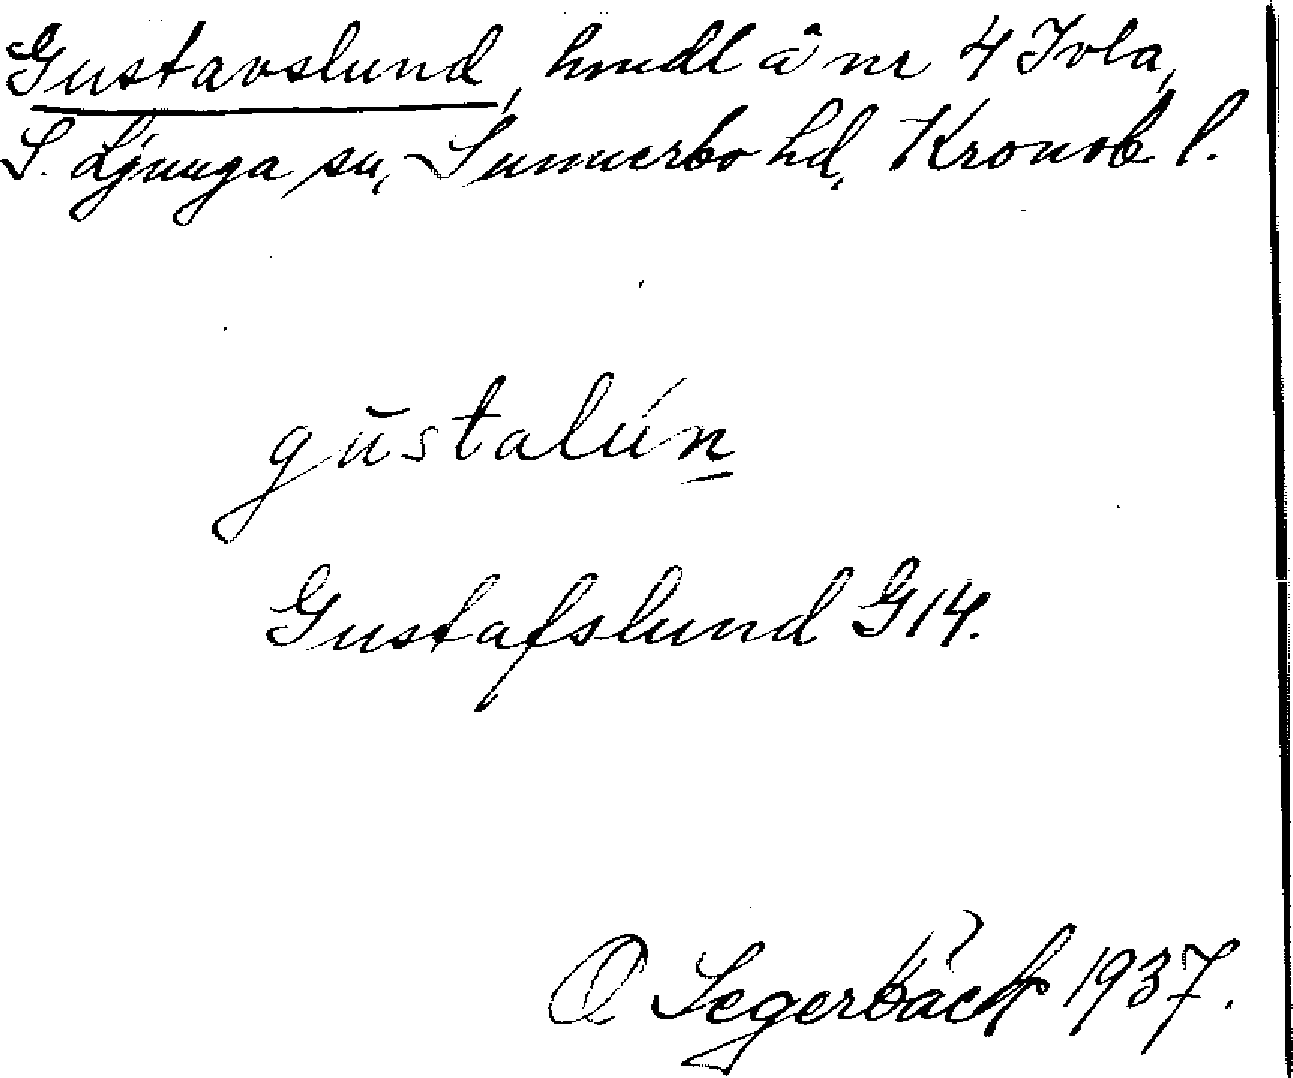 Gustavslund, hmdl å nr 4 Ivla,
S. Ljunga sn, Sunnerbo hd, Kronob l.
gu̅stalún
Gustafslund G14.
O Segerbäck 1937.